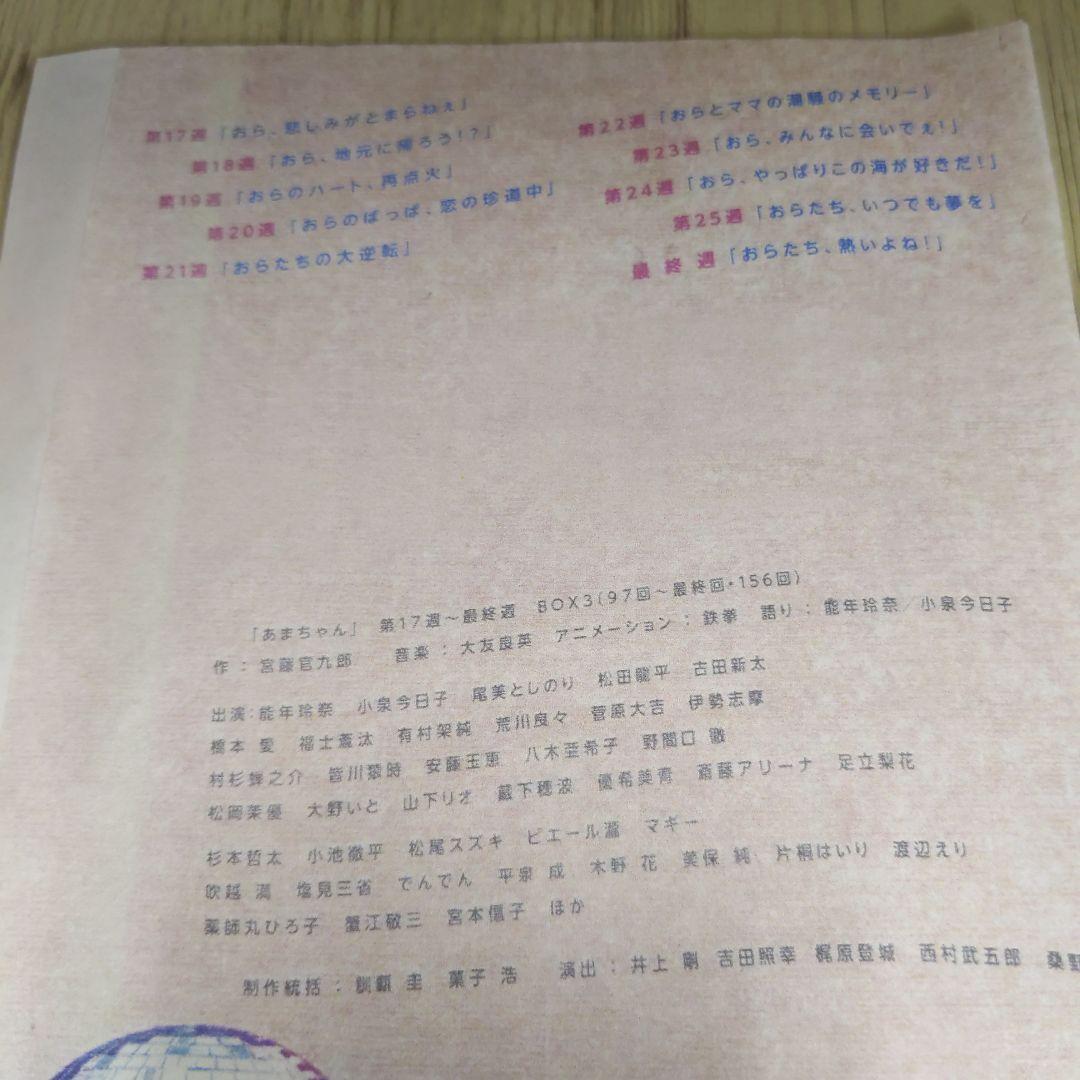 第17週「おら、悲しみがとまらねぇ」
第18週「おら、地元に帰ろう!?」
第19週「おらのハート、再点火」
第20週「おらのばっぱ、恋の珍道中」
第21週「おらたちの大逆転」
第22週「おらとママの潮騒のメモリー」
第23週「おら、みんなに会いでぇ!」
第24週「おら、やっぱりこの海が好きだ!」
第25週「おらたち、いつでも夢を」
最終週「おらたち、熱いよね!」
「あまちゃん」 第17週〜最終週 BOX3(97回〜最終回・156回)
作：宮藤官九郎 音楽：大友良英 アニメーション：鉄拳 語り：能年玲奈／小泉今日子
出演：能年玲奈 小泉今日子 尾美としのり 松田龍平 古田新太
橋本 愛 福士蒼汰 有村架純 荒川良々 菅原大吉 伊勢志摩
村杉蝉之介 皆川猿時 安藤玉恵 八木亜希子 野間口 徹
松岡茉優 大野いと 山下リオ 蔵下穂波 優希美青 斎藤アリーナ 足立梨花
杉本哲太 小池徹平 松尾スズキ ピエール瀧 マギー
吹越 満 塩見三省 でんでん 平泉 成 木野 花 美保 純 片桐はいり 渡辺えり
薬師丸ひろ子 蟹江敬三 宮本信子 ほか
制作統括：訓覇 圭 菓子 浩 演出：井上 剛 吉田照幸 梶原登城 西村武五郎 桑野